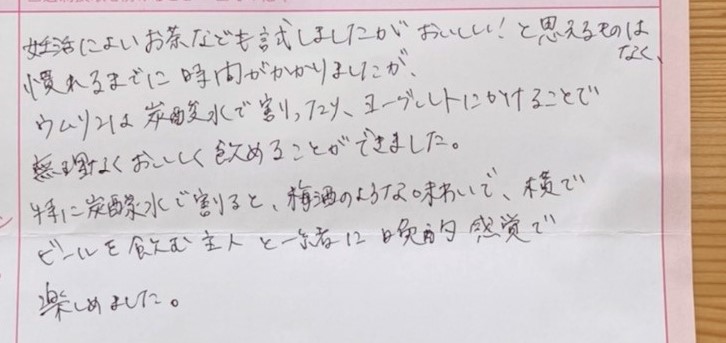 妊活によいお茶なども試しましたがおいしい!と思えるものはなく、
慣れるまでに時間がかかりましたが、
ウムリンは炭酸水で割ったり、ヨーグルトにかけることで
無理なくおいしく飲めることができました。
特に炭酸水で割ると、梅酒のような味わいで、横で
ビールを飲む主人と一緒に晩酌感覚で
楽しめました。